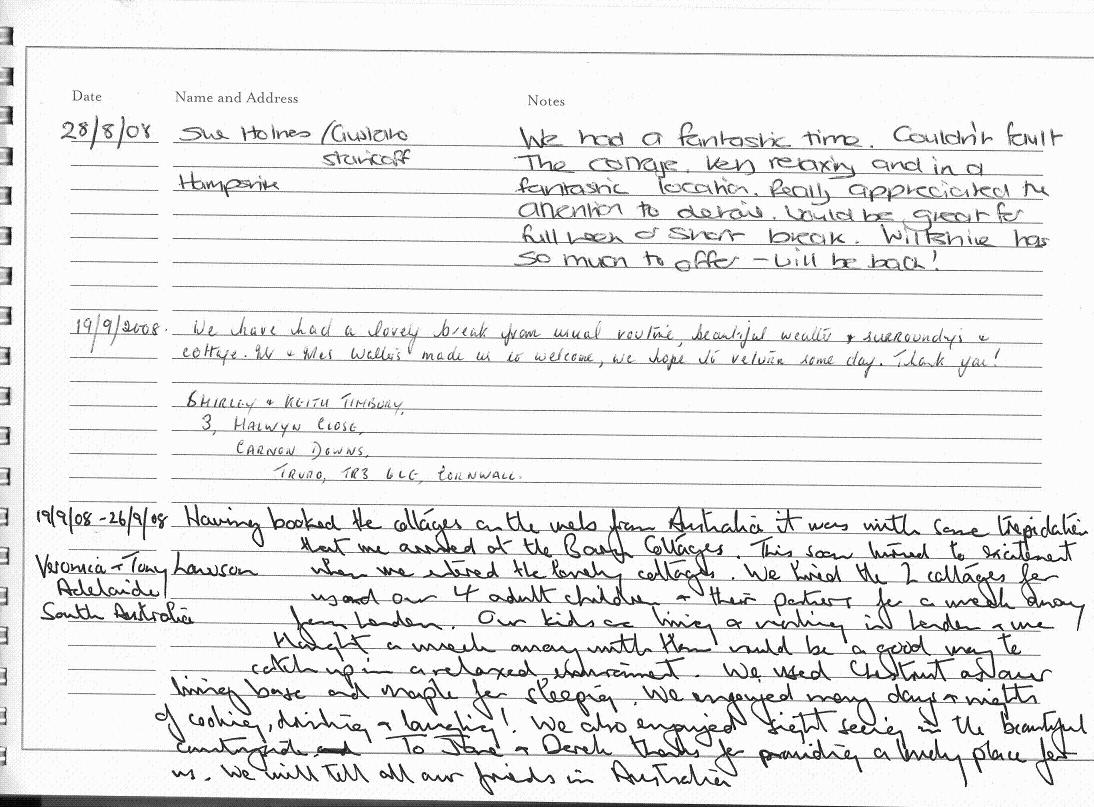 Date Name and Address Notes
28/8/08 Sue Holmes / Gustavo We had a fantastic time. Couldn't fault
staricoff The cottage. Very relaxing and in a
Hampshire fantastic location. Really appreciated the
attention to detail. Would be great for
full week or short break. Wiltshire has
so much to offer - will be back!
19/9/2008. We have had a lovely break from usual routine, beautiful weather & surroundings &
cottage. Mr & Mrs Wallis made us so welcome, we hope to return some day. Thank you!
SHIRLEY & KEITH TIMBURY,
3, HALWYN CLOSE,
CARNON DOWNS,
TRURO, TR3 6LE, CORNWALL.
19/9/08 - 26/9/08 Having booked the cottages on the web from Australia it was with some trepidation
that we arrived at the Barn Cottages. This soon turned to excitement
Veronica & Tony Lawson when we entered the lovely cottages. We hired the 2 cottages for
Adelaide us and our 4 adult children & their partners for a week away
South Australia from London. Our kids are living & working in London & we
thought a week away with them would be a good way to
catch up in a relaxed environment. We used Chestnut as our
living base and maple for sleeping. We enjoyed many days & nights
of cooking, drinking & laughing! We also enjoyed sight seeing in the beautiful
countryside. To & Derek thanks for providing a lovely place for
us. We will tell all our friends in Australia